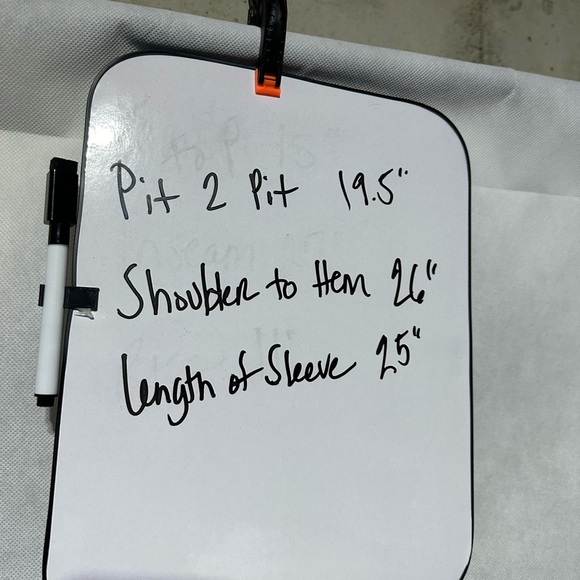 Pit 2 Pit 19.5"
Shoulder to Hem 26"
Length of Sleeve 25"